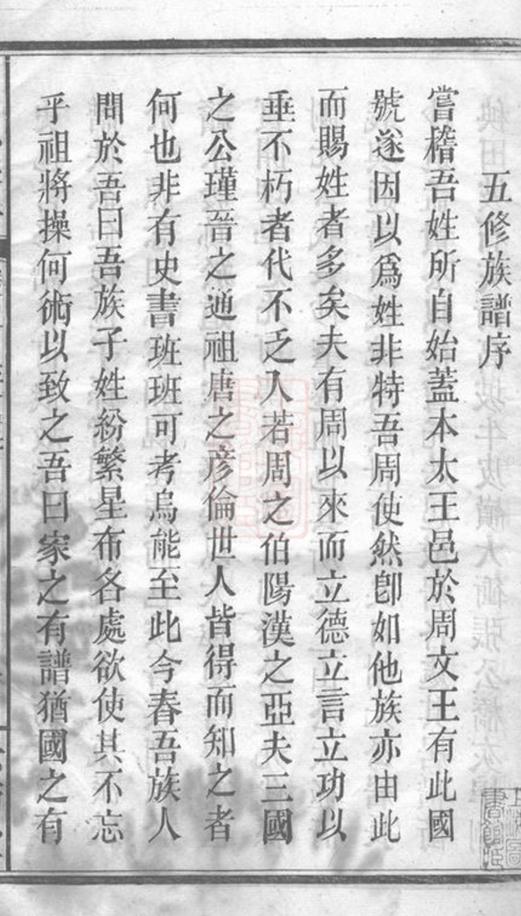 五修族譜序
嘗稽吾姓所自始蓋本太王邑於周文王有此國
號遂因以爲姓非特吾周使然卽如他族亦由此
而賜姓者多矣夫有周以來而立德立言立功以
垂不朽者代不乏人若周之伯陽漢之亞夫三國
之公瑾晉之通祖唐之彦倫世人皆得而知之者
何也非有史書班班可考烏能至此今春吾族人
問於吾曰吾族子姓紛繁星布各處欲使其不忘
乎祖將操何術以致之吾曰家之有譜猶國之有